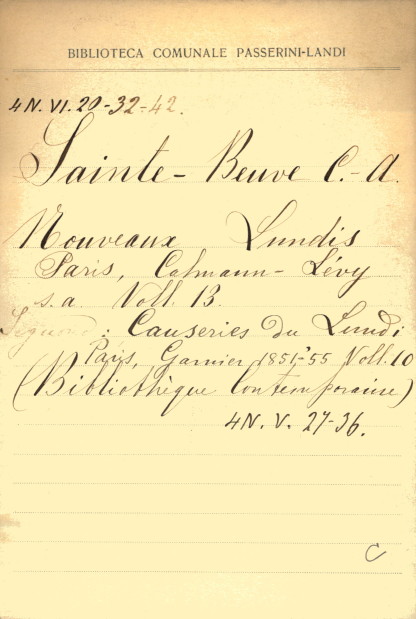 BIBLIOTECA COMUNALE PASSERINI-LANDI
4N. VI. 20-32-42.
Sainte-Beuve C.-A.
Nouveaux Lundis
Paris, Calmann-Lévy
s. a. Voll. 13.
Segnond: Causeries du Lundi
Paris, Garnier, 1851-'55 Voll. 10
(Bibliothèque Contemporaine)
4N. V. 27-36.
C